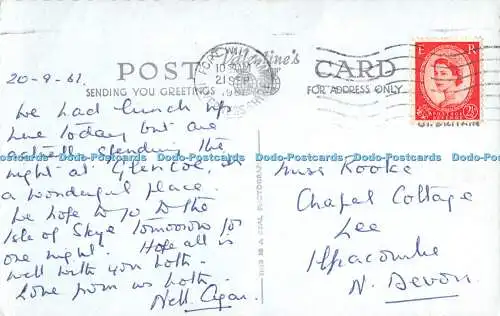 Valentine's
POST CARD
SENDING YOU GREETINGS
FOR ADDRESS ONLY
FORT WILL
10
21 SEP
196
INVERNESS-SHIRE
E R
POSTAGE REVENUE
2½D
GT. BRITAIN
20-9-61
We had lunch up
here today but are
actually spending the
night at Glencoe,
a wonderful place.
We hope to go to the
Isle of Skye tomorrow for
one night. Hope all is
well with you both.
Love from us both.
Nell.
Miss Rooke
Chapel Cottage
Lee
Ilfracombe
N. Devon.
THIS IS A REAL PHOTOGRAPH
Dodo-Postcards Dodo-Postcards Dodo-Postcards Dodo-Postcards Dodo-Postcards Dodo-Postcards